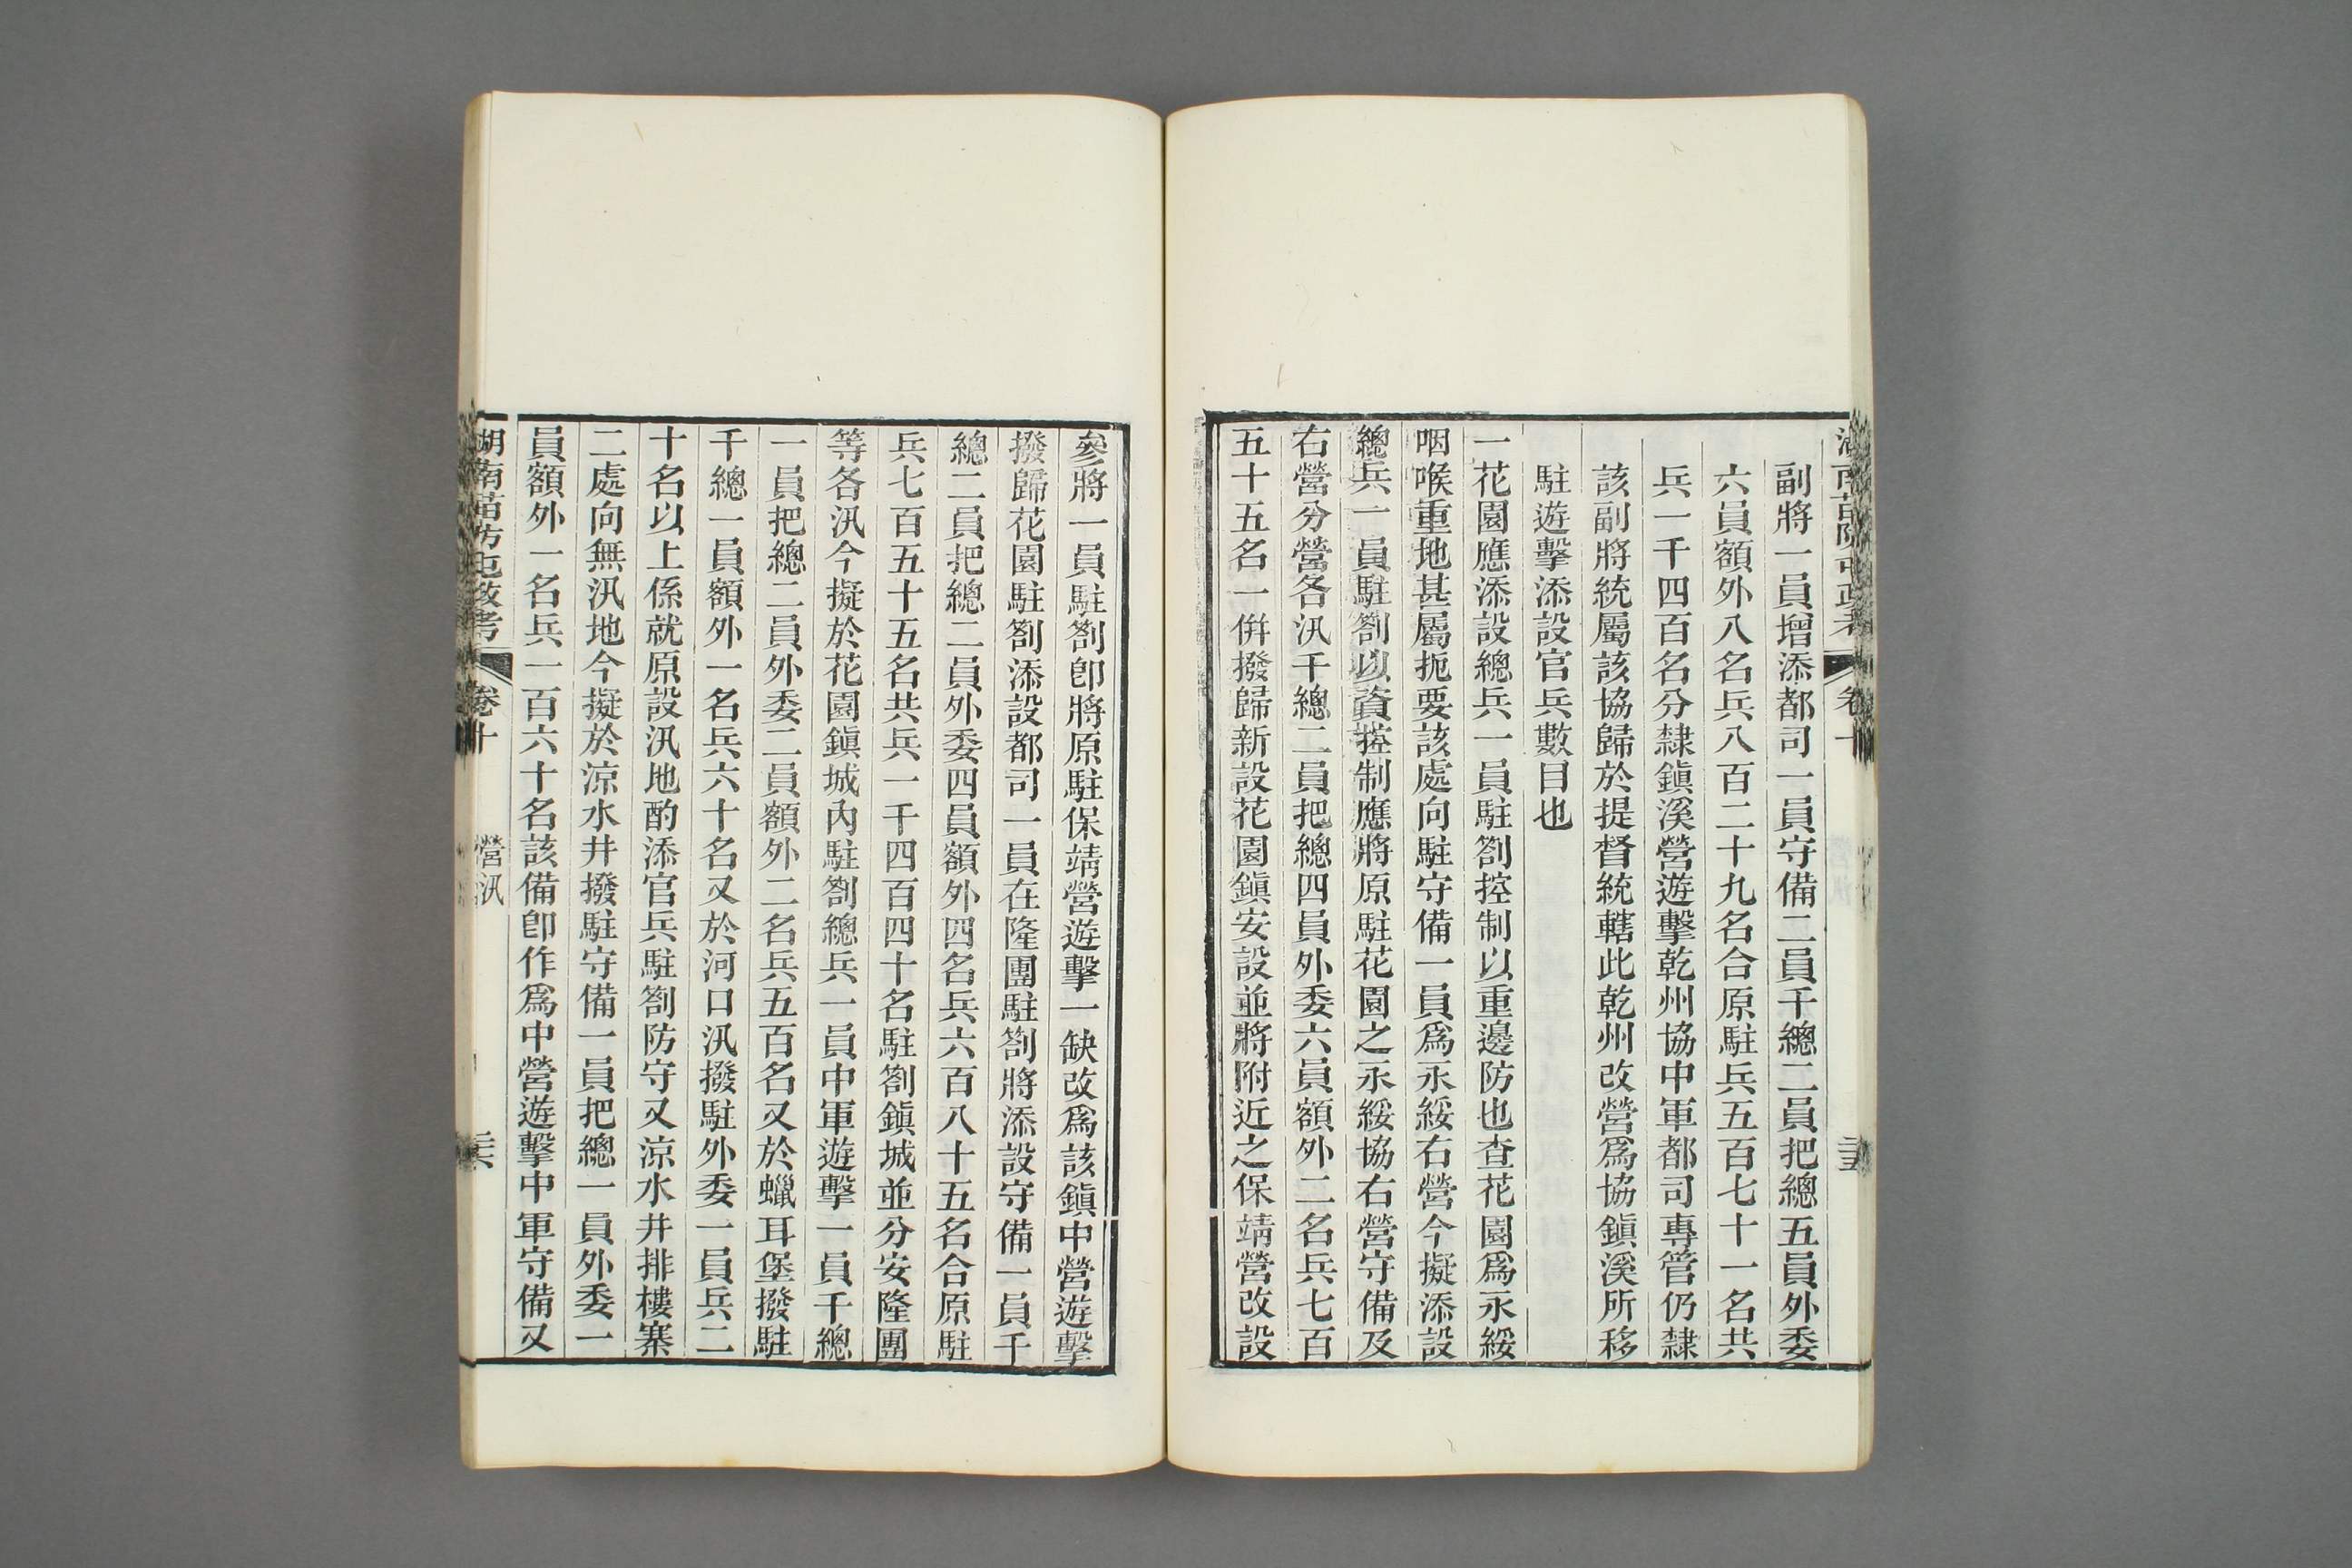 副將一員增添都司一員守備二員千總二員把總五員外委
六員額外八名兵八百二十九名合原駐兵五百七十一名共
兵一千四百名分隸鎮溪營遊擊乾州協中軍都司專管仍隸
該副將統屬該協歸於提督統轄此乾州改營爲協鎮溪所移
駐遊擊添設官兵數目也
一花園應添設總兵一員駐劄控制以重邊防也查花園爲永綏
咽喉重地甚屬扼要該處向駐守備一員爲永綏右營今擬添設
總兵一員駐劄以資控制應將原駐花園之永綏協右營守備及
右營分營各汛千總二員把總四員外委六員額外二名兵七百
五十五名一併撥歸新設花園鎭安設並將附近之保靖營改設
參將一員駐劄卽將原駐保靖營遊擊一缺改爲該鎭中營遊擊
撥歸花園駐劄添設都司一員在隆團駐劄將添設守備一員千
總二員把總二員外委四員額外四名兵六百八十五名合原駐
兵七百五十五名共兵一千四百四十名駐劄鎭城並分安隆團
等各汛今擬於花園鎭城內駐劄總兵一員中軍遊擊一員千總
一員把總二員外委二員額外二名兵五百名又於蠟耳堡撥駐
千總一員額外一名兵六十名又於河口汛撥駐外委一員兵二
十名以上係就原設汛地酌添官兵駐劄防守又涼水井排樓寨
二處向無汛地今擬於涼水井撥駐守備一員把總一員外委一
員額外一名兵一百六十名該備卽作爲中營遊擊中軍守備又
湖南苗防屯政考 卷十 營汛 二六